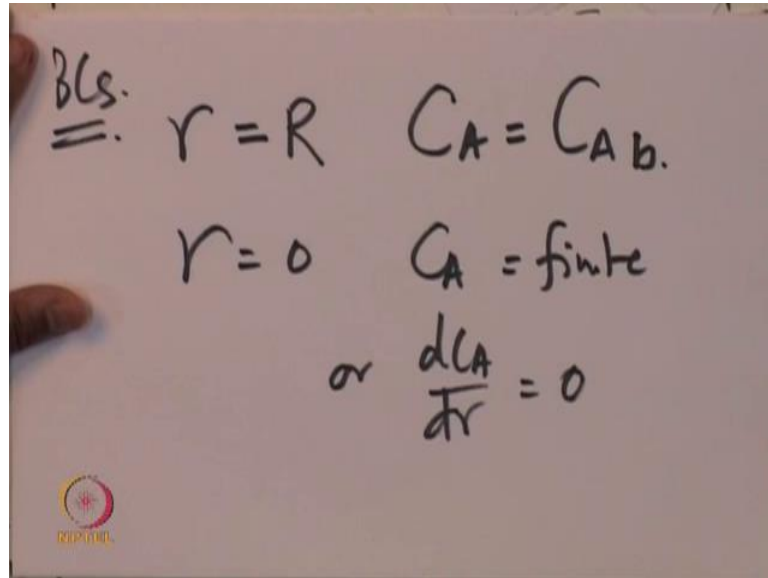 BCs.
r = R C_A = C_A b.
r = 0 C_A = finite
or dC_A/dr = 0
NPTEL